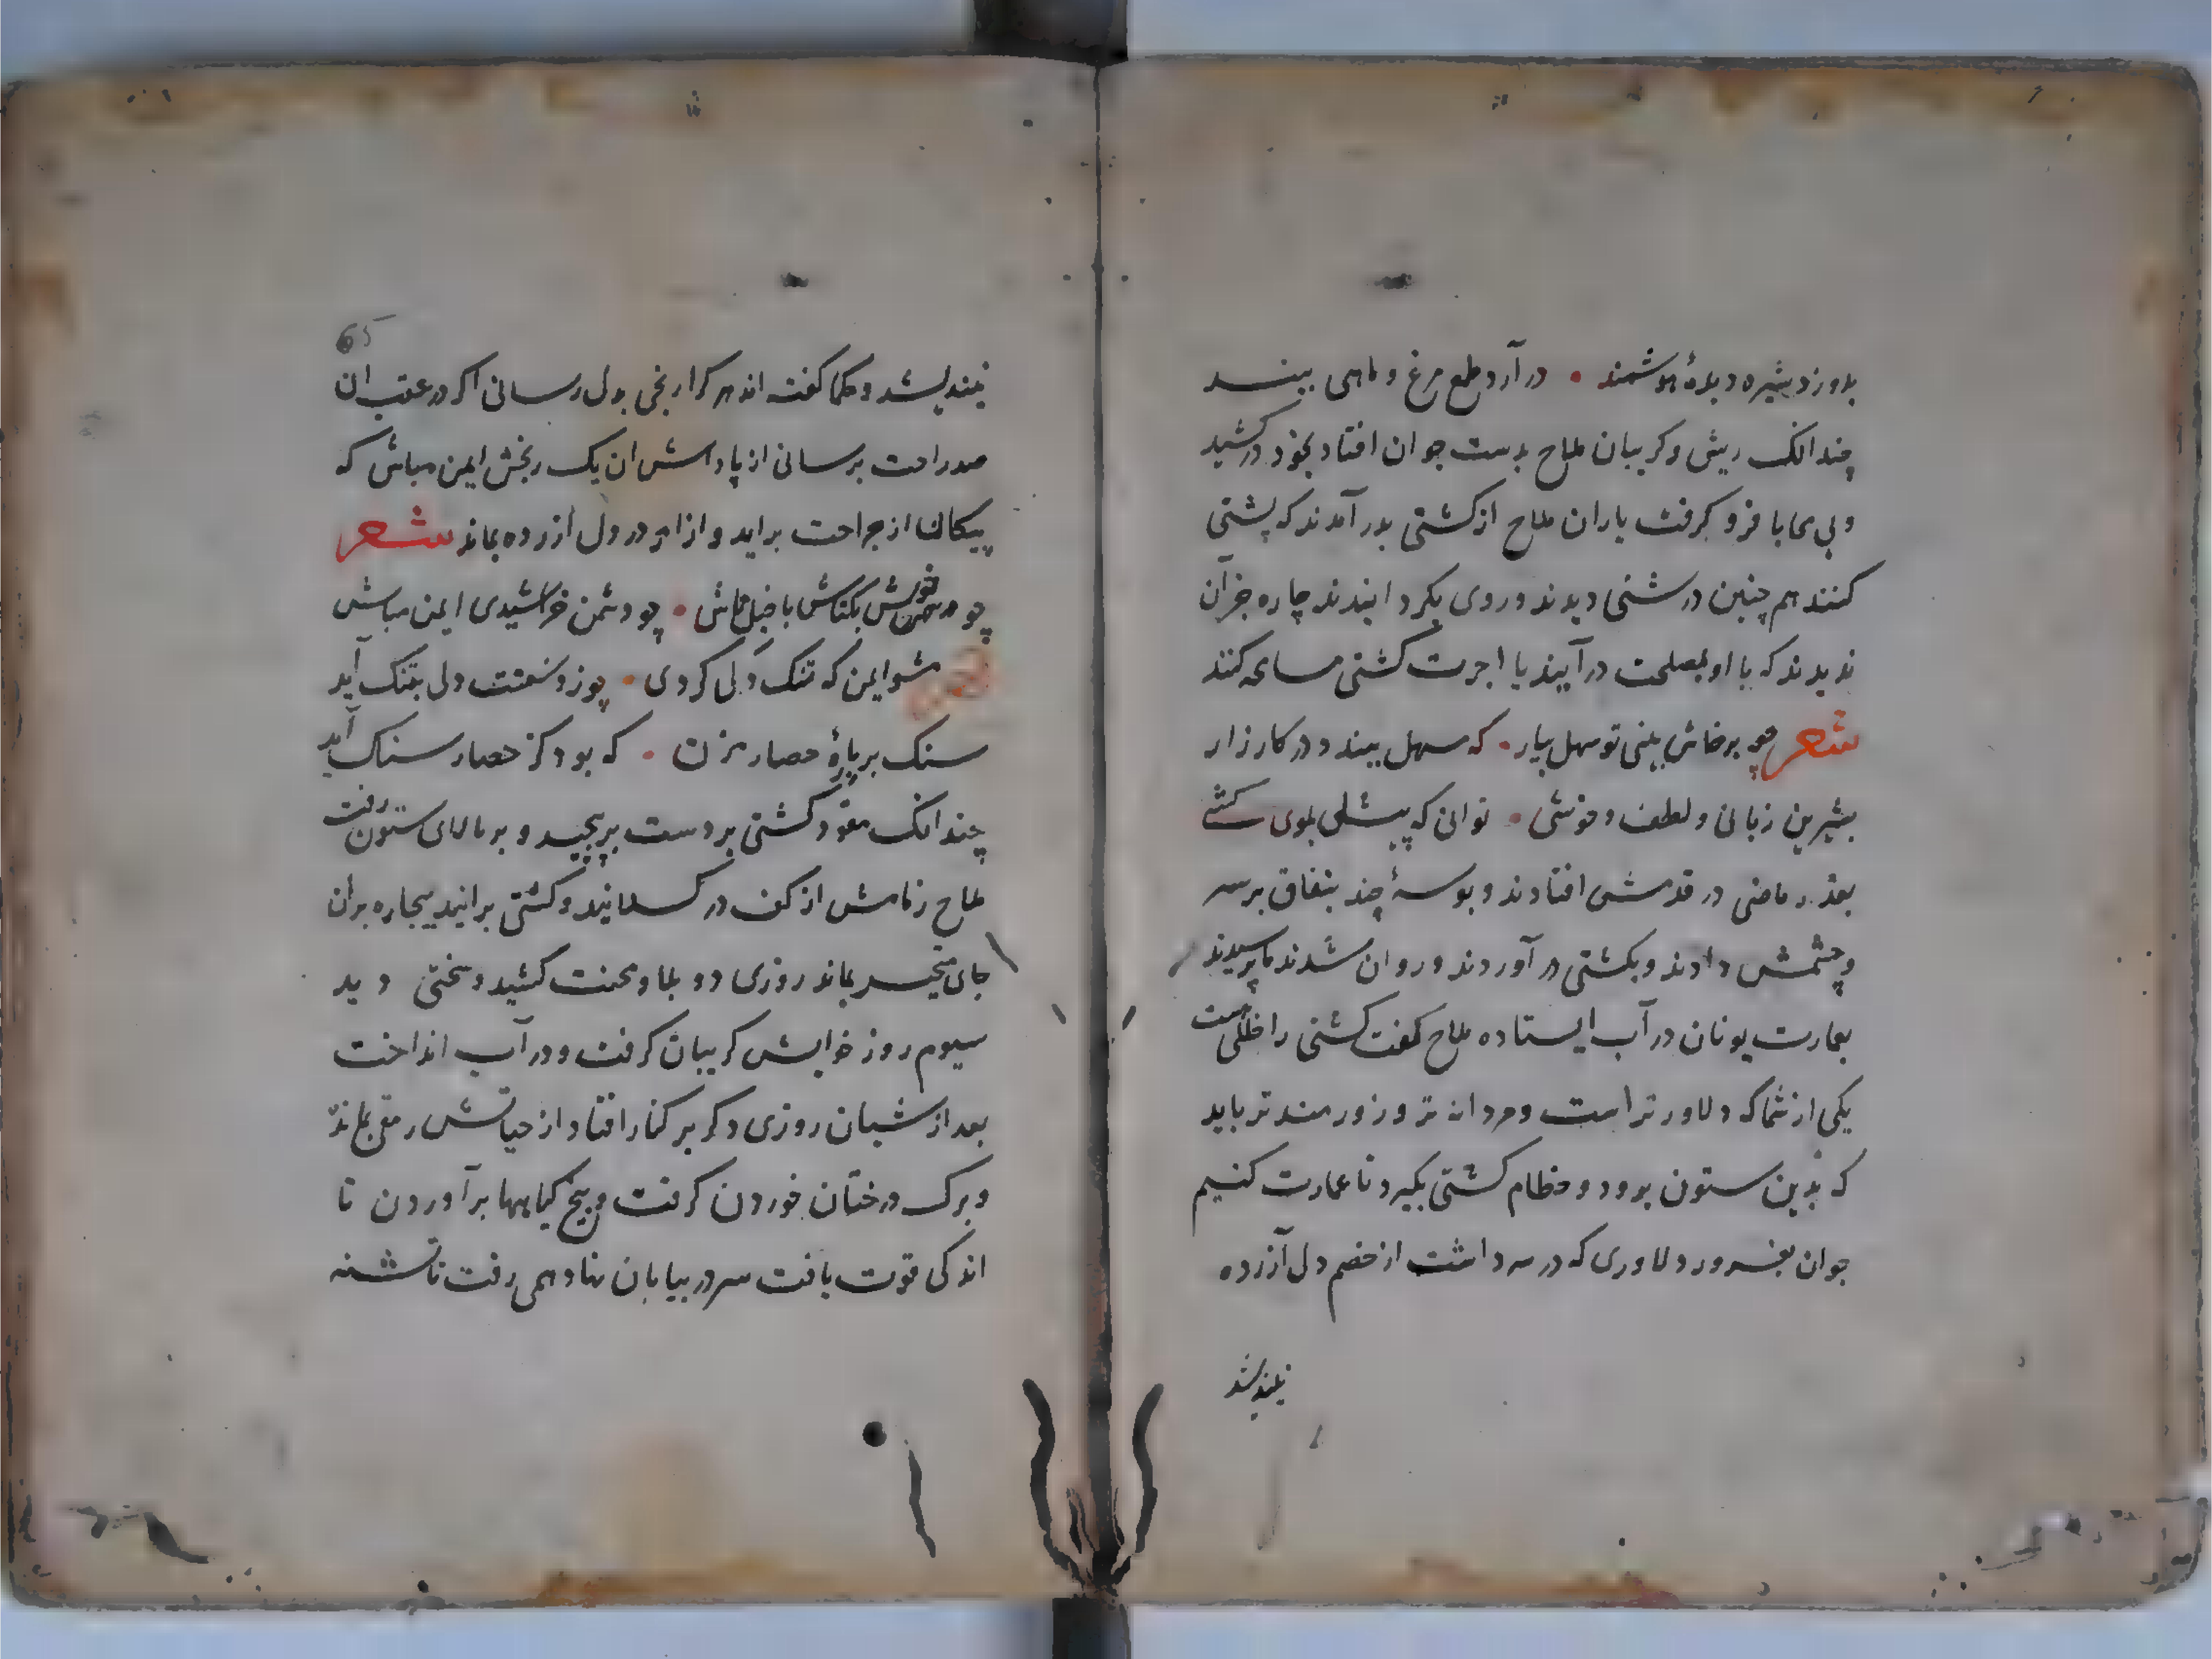 بدوزد بشیره دیدهٔ هوشمند • در آرد طمع مرغ و ماهی ببند
چندانک ریش و کریبان ملاح بدست جوان افتاد بخود درکشید
و بی محابا فرو کرفت یاران ملاح از کشتی بدر آمدند که پشتی
کنند هم چنین درشتی دیدند و روی بکردانیدند چاره جز آن
ندیدند که با او بمصلحت درآیند با اجرت کشتی مسامحه کنند
شعر چو برخاش بینی تو سهل بیار • که سهل ببندد در کارزار
بشیرین زبانی و لطف و خوشی • توانی که پیلی بموی کشی
بعذر ماضی در قدمش افتادند و بوسهٔ چند بنفاق بر سر
و چشمش دادند و بکشتی در آوردند و روان شدند تا برسیدند
بعمارت یونان در آب ایستاده ملاح کفت کشتی را خللی هست
یکی از شما که دلاورتر است و مردانه تر و زورمندتر باید
که بدین ستون برود و خطام کشتی بکیرد تا عمارت کنیم
جوان بغرور دلاوری که در سر داشت از خصم دل آزرده
نیندیشد
65
نیندیشد و حکما کفته اند هر کرا رنجی بدل رسانی اکر در عقب ان
صد راحت برسانی از پاداش ان یک رنجش ایمن مباش که
پیکان از جراحت براید و ازار در دل ازرده بماند شعر
چو خوش کفت بکتاش با خیلتاش • چو دشمن خراشیدی ایمن مباش
مشو ایمن که تنک دلی کردی • چون ز دستت دلی بتنک آید
سنک بر بارهٔ حصار مزن • که بود کز حصار سنک آید
چندانک مقود کشتی بر دست بپیچید و بر بالای ستون رفت
ملاح زمامش از کف در کسلانید و کشتی برانید بیچاره بر آن
جای متحیر بماند روزی دو بلا و محنت کشید و سختی دید
سیوم روز خوابش کریبان کرفت و در آب انداخت
بعد از شبان روزی دکر بر کنار افتاد از حیاتش رمقی مانده
و برک درختان خوردن کرفت و بیخ کیاهها برآوردن تا
اندکی قوت یافت سر در بیابان نهاد و همی رفت تا تشنه